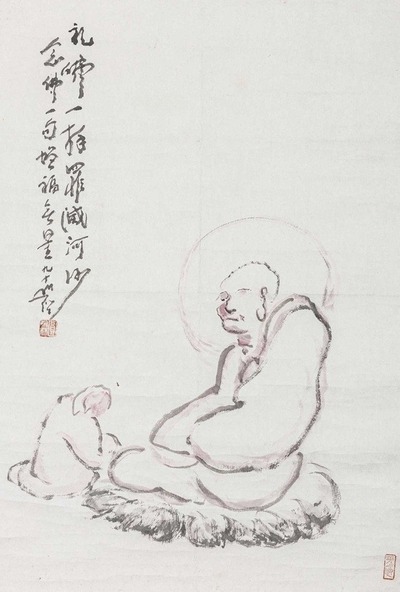 礼 一拜罪滅河沙
念佛一句增福无量 九十